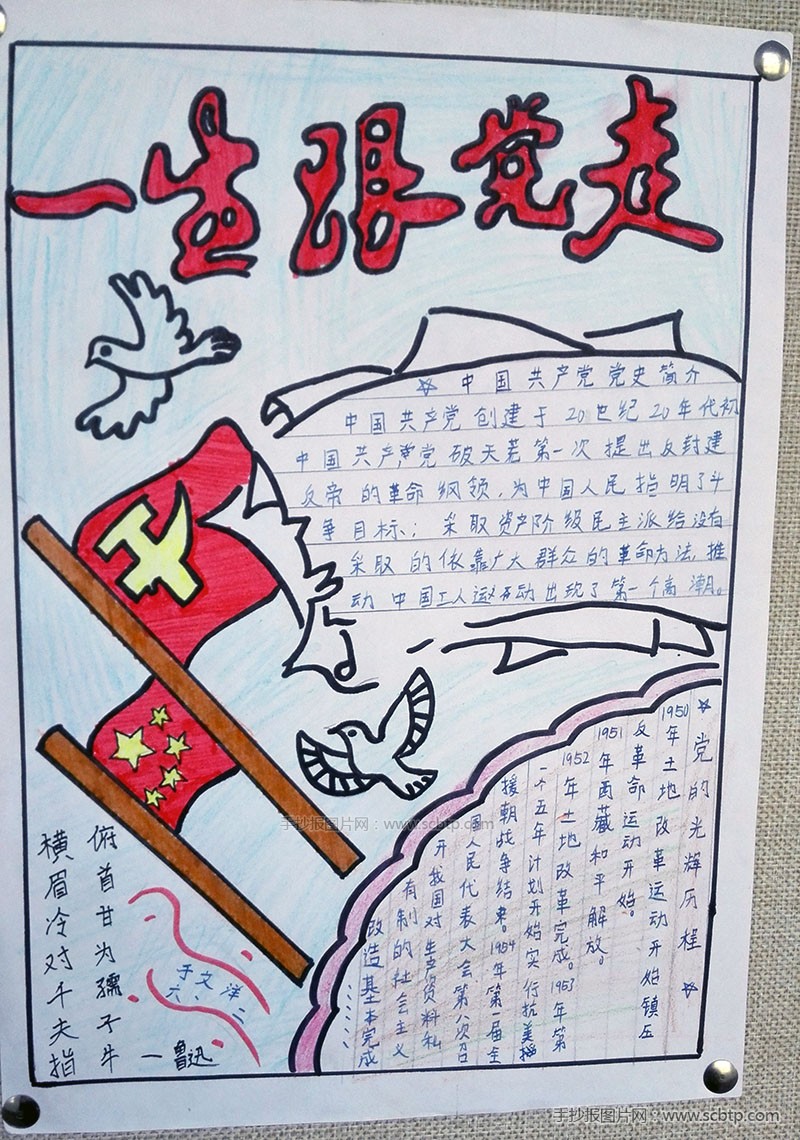 一生跟党走
☆ 中国共产党党史简介
中国共产党创建于20世纪20年代初
中国共产党破天荒第一次提出反封建
反帝的革命纲领,为中国人民指明了斗
争目标;采取资产阶级民主派给没有
采取的依靠广大群众的革命方法,推
动中国工人运动出现了第一个高潮。
☆党的光辉历程☆
1950年土地改革运动开始镇压
反革命运动开始。
1951年西藏和平解放。
1952年土地改革完成。1953年第
一个五年计划开始实行抗美援
援朝战争结束。1954年第一届全
国人民代表大会第八次召
开我国对生产资料私
有制的社会主义
改造基本完成
横眉冷对千夫指
俯首甘为孺子牛
一鲁迅
于文洋
六、二
手抄报图片网:www.scbtp.com
手抄报图片网:www.scbtp.com